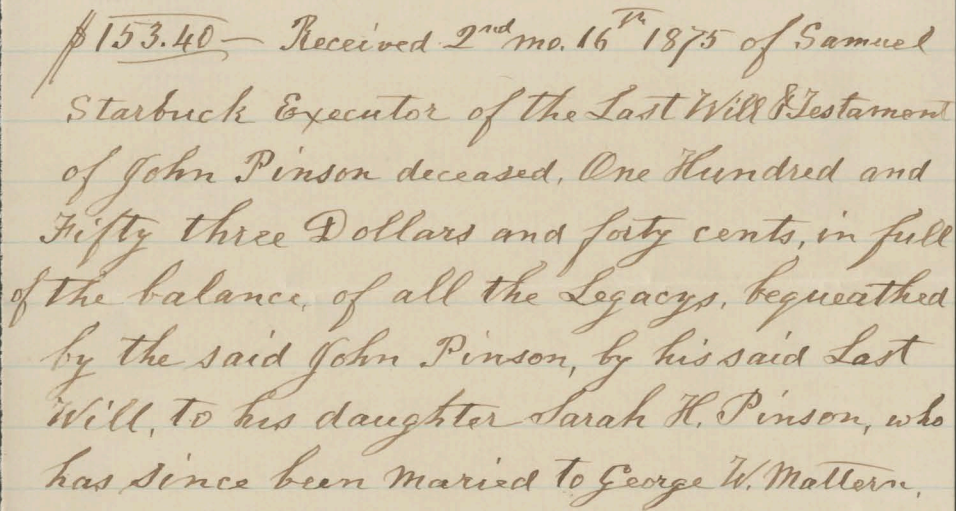 $153.40— Received 2nd mo. 16th 1875 of Samuel
Starbuck Executor of the Last Will & Testament
of John Pinson deceased, One Hundred and
Fifty three Dollars and forty cents, in full
of the balance, of all the Legacys, bequeathed
by the said John Pinson, by his said Last
Will, to his daughter Sarah H. Pinson, who
has since been maried to George W. Mattern,